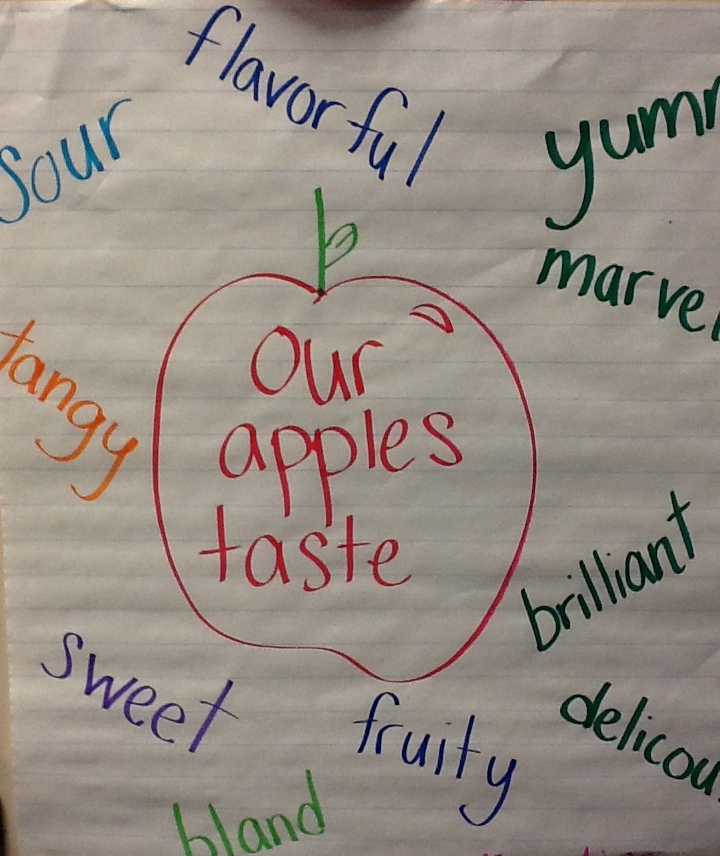 flavorful
sour
yumm
marvel
Our
apples
taste
tangy
brilliant
sweet
fruity
delicou
bland